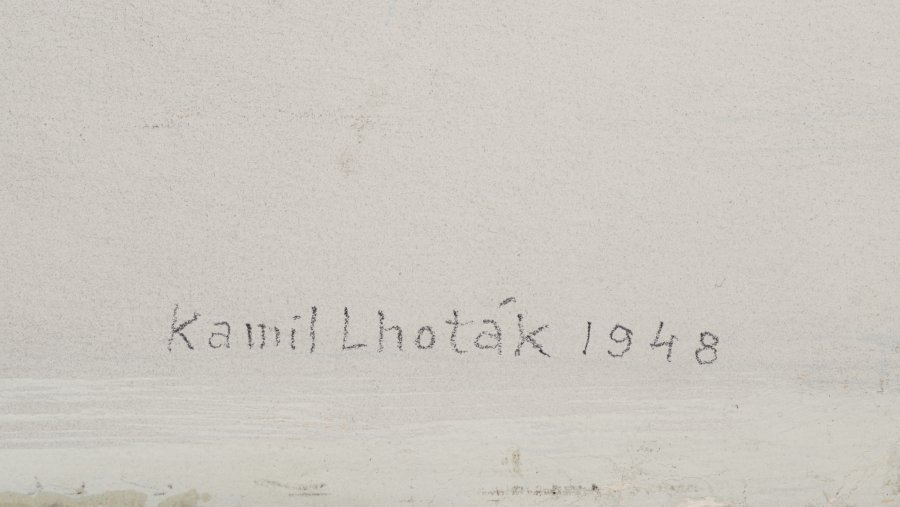 Kamil Lhoták 1948